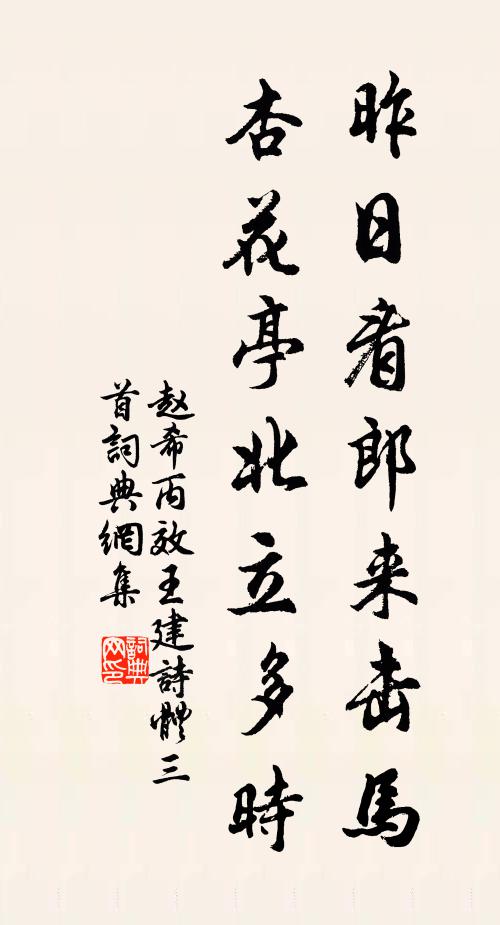 昨日看郎来击馬
杏花亭北立多時
赵希丙效王建詩體三
首詞典網集
詞典網印